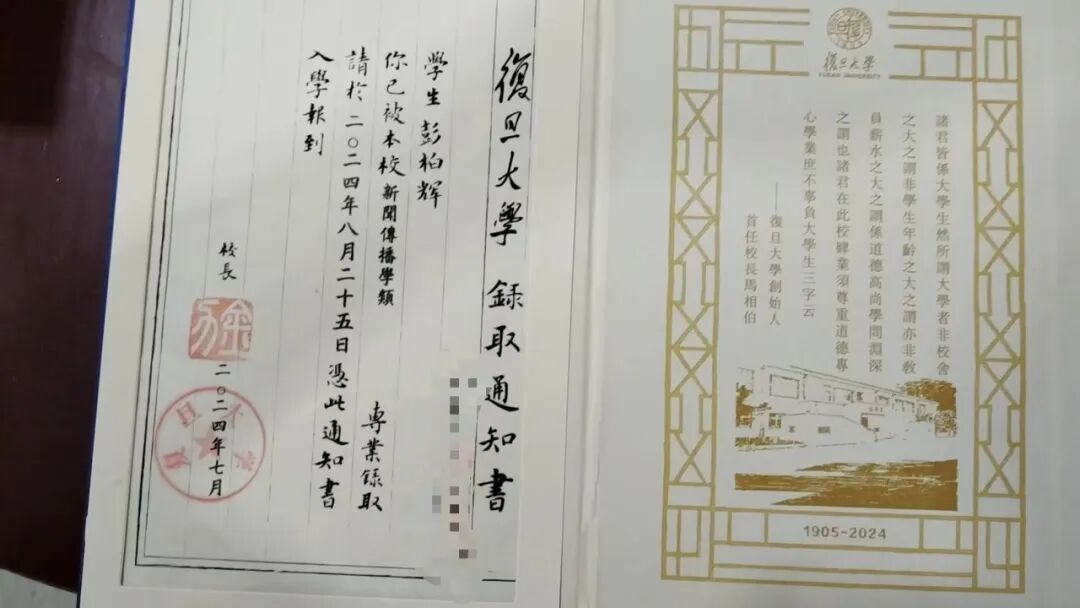 復旦大學 錄取通知書
學生 彭柏辉
你已被本校新聞傳播學類 專業錄取
請於二〇二四年八月二十五日憑此通知書
入學報到
校長
金力
二〇二四年七月
復旦大學
復旦大學
FUDAN UNIVERSITY
諸君皆係大學生然所謂大學者非校舍
之大之謂非學生年齡之大之謂亦非教
員薪水之大之謂係道德高尚學問淵深
之謂也諸君在此校肄業須尊重道德專
心學業庶不辜負大學生三字云
——復旦大學創始人
首任校長馬相伯
1905-2024